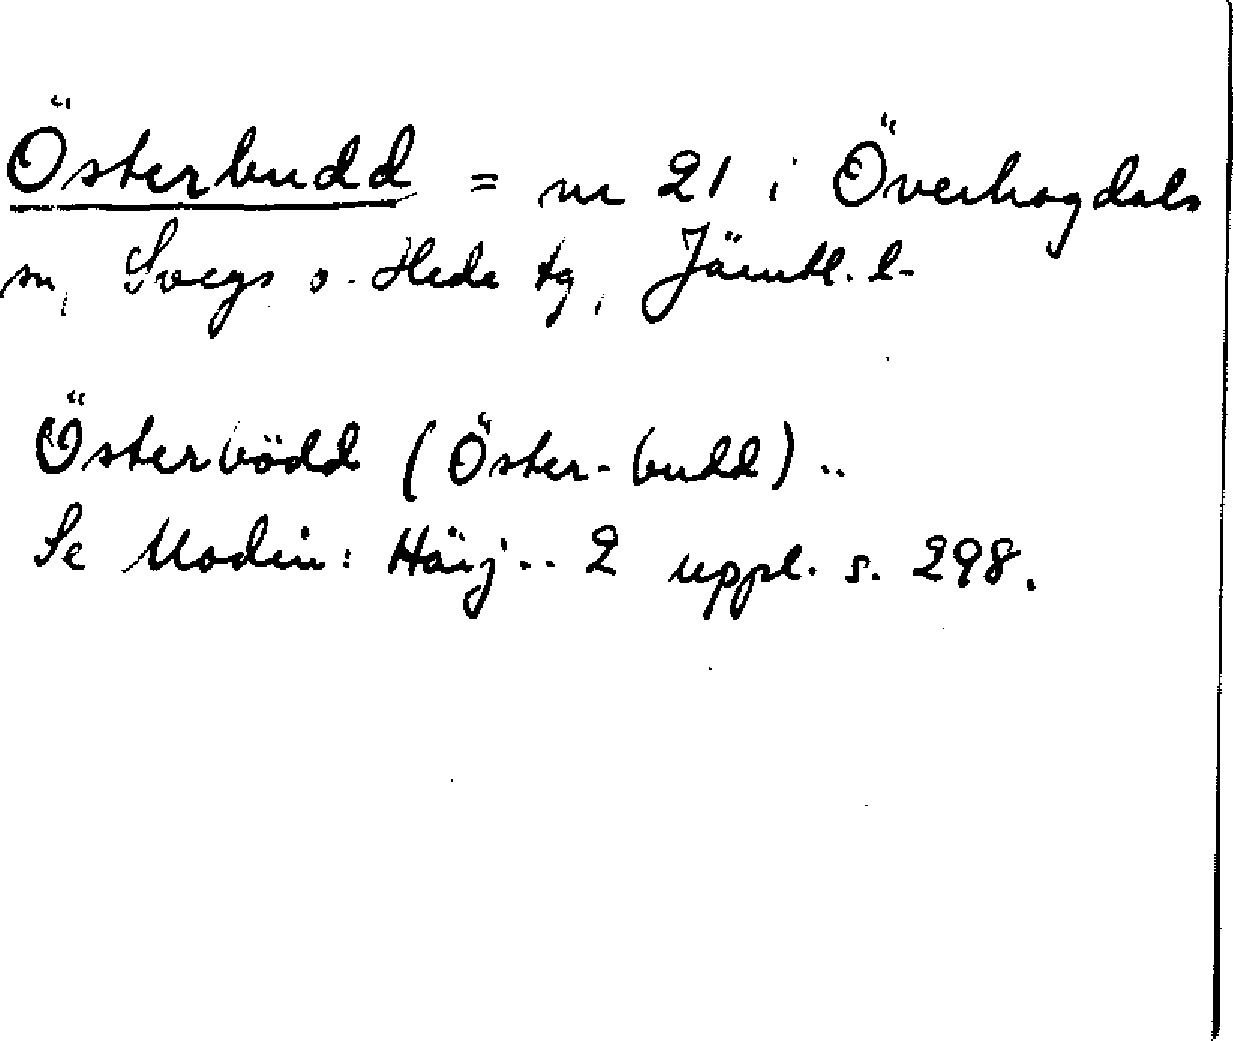 Österbudd = nr 21 i Överhogdals
sn, Svegs o. Hede tg, Jämtl. l-
Österbödd (Öster-budd)..
Se Modin: Härj.. 2 uppl. s. 298.